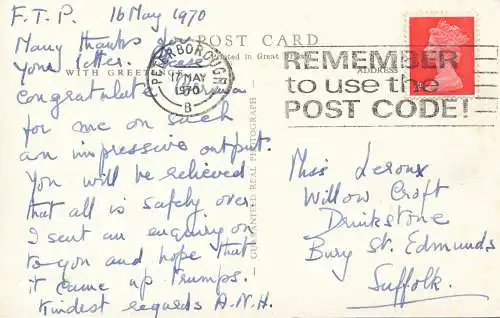 F.T.P. 16 May 1970
POST CARD
Many thanks for
your letter. Please
WITH GREET
Printed in Great
congratulate
for me on such
an impressive output.
You will be relieved
that all is safely over
I sent an enquiry on
to you and hope that
it came up trumps!
Kindest regards A.N.H.
GUARANTEED REAL PHOTOGRAPH
PETERBOROUGH
17 MAY
1970
B
REMEMBER
to use the
POST CODE!
ADDRESS
Miss Leroux
Willow Croft
Drinkstone
Bury St. Edmunds
Suffolk.